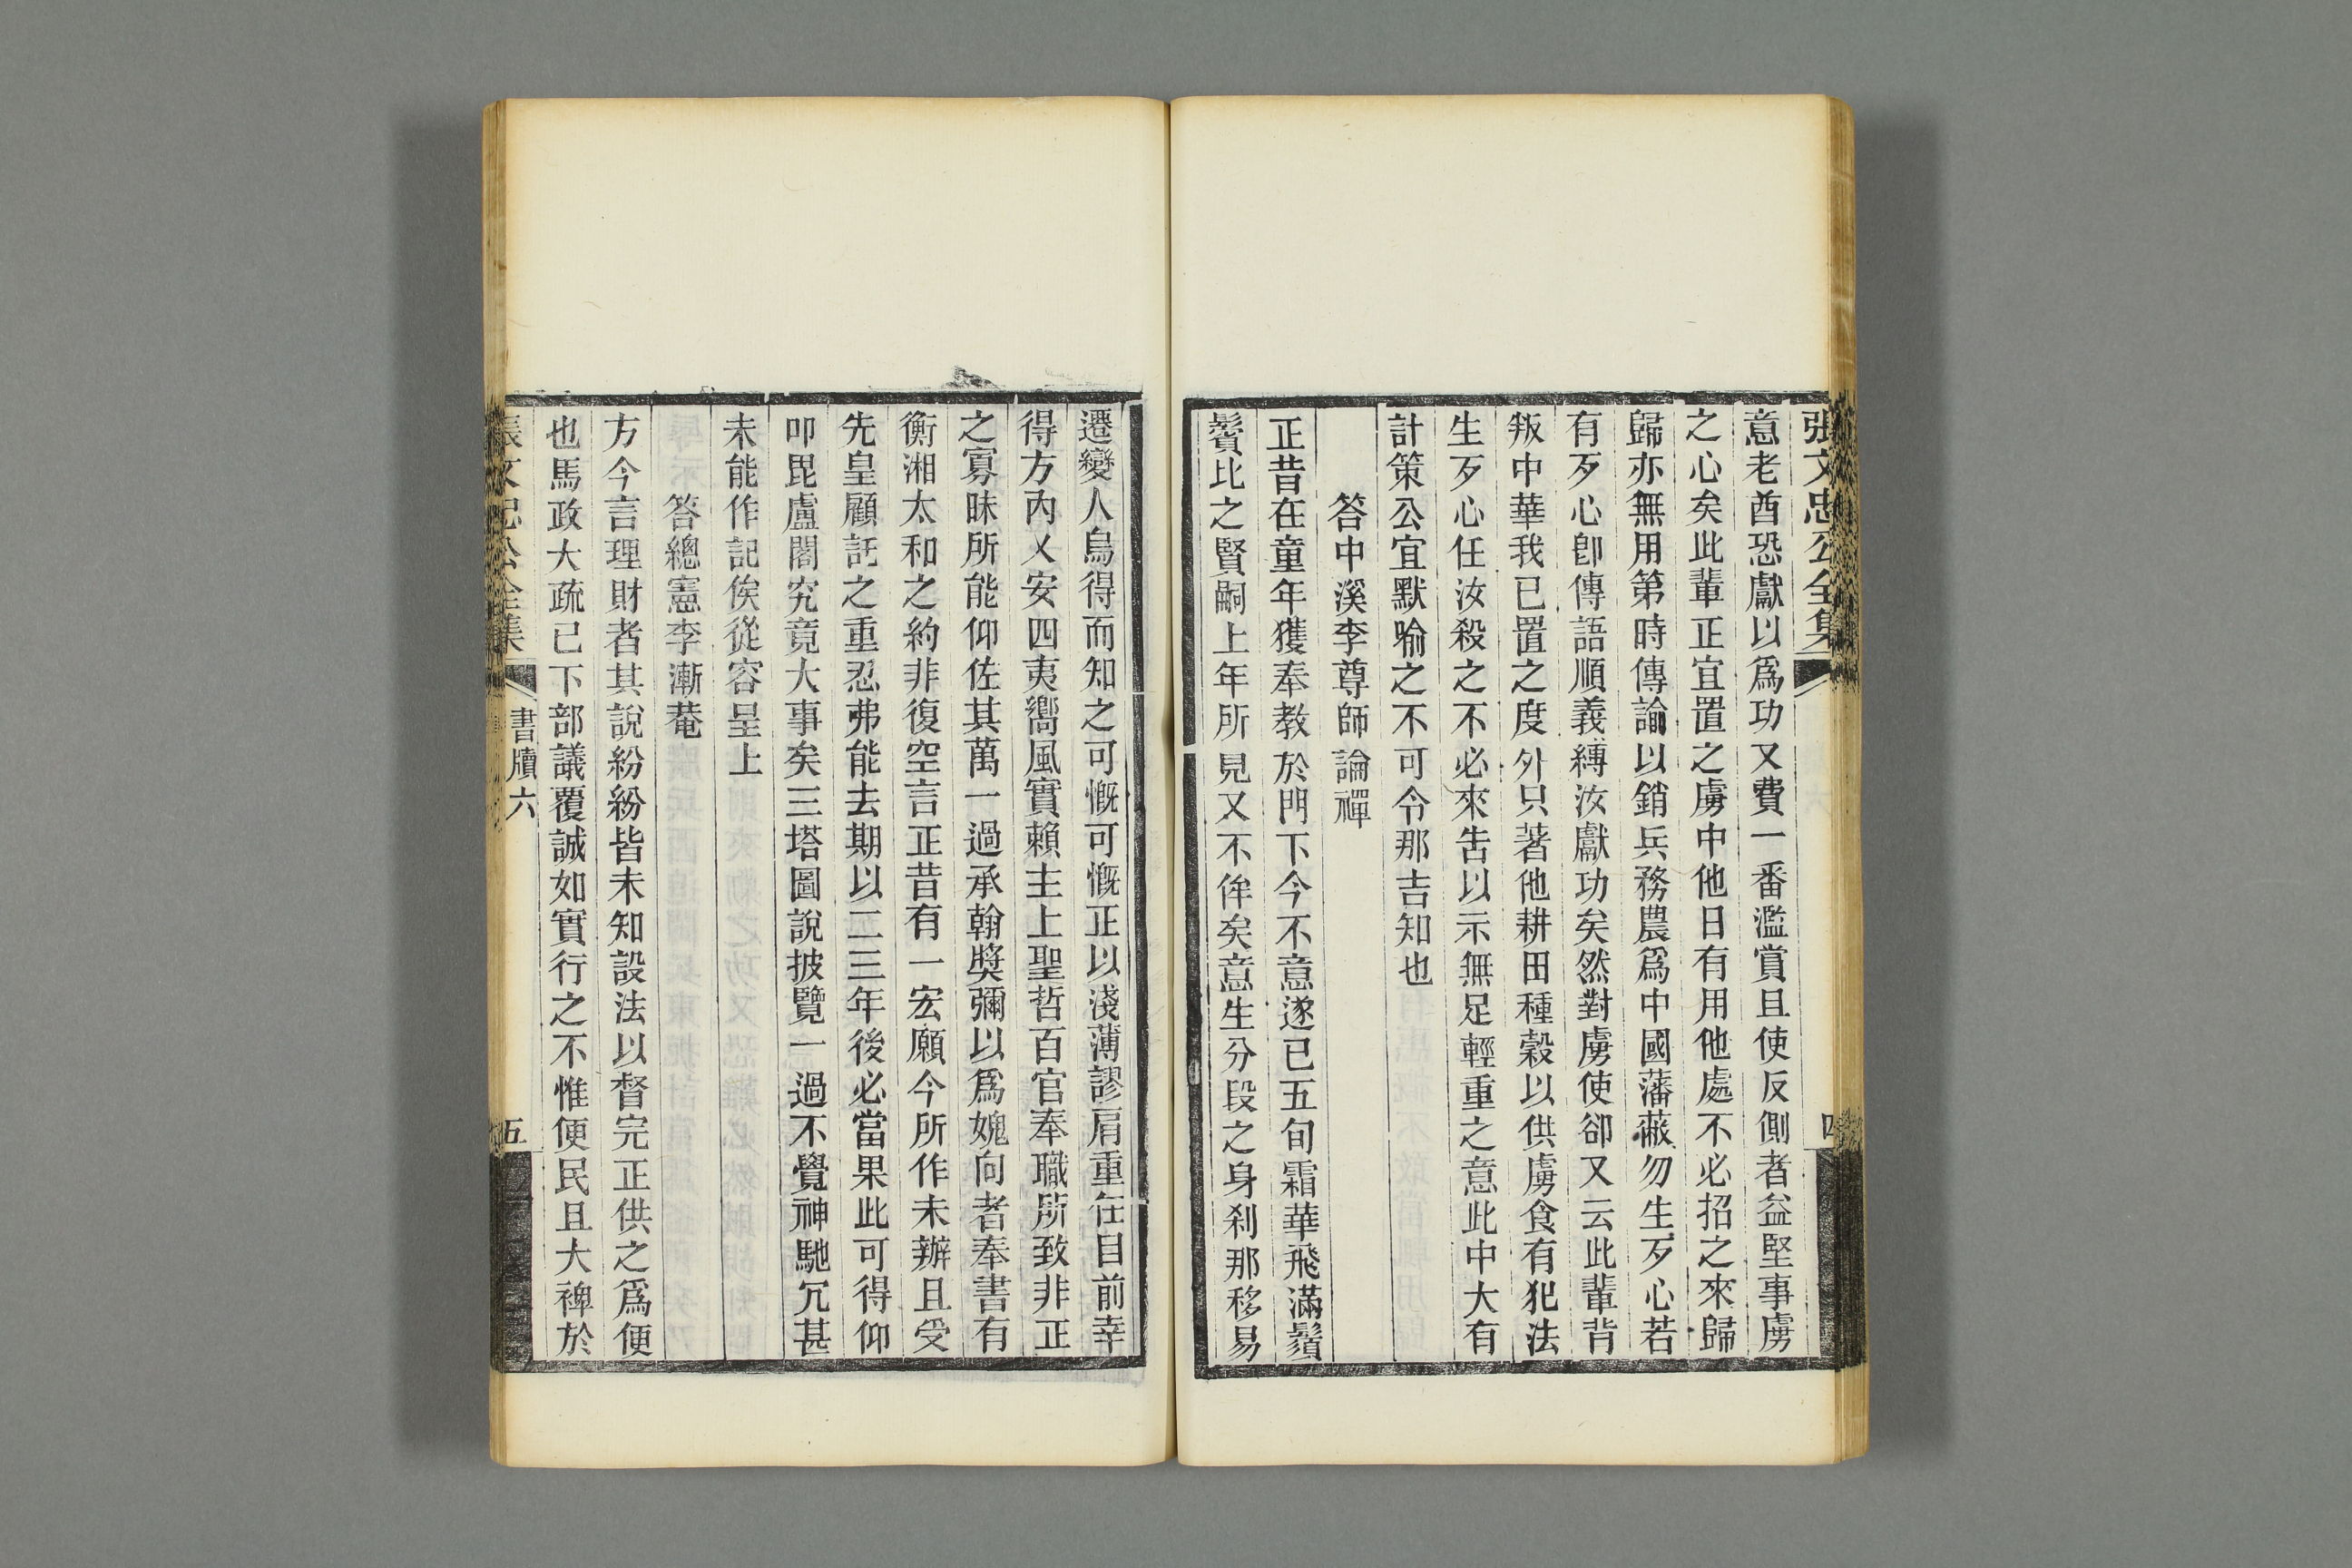 張文忠公全集
四
意老酋恐獻以爲功又費一番濫賞且使反側者益堅事虜
之心矣此輩正宜置之虜中他日有用他處不必招之來歸
歸亦無用第時傳諭以銷兵務農爲中國藩蔽勿生歹心若
有歹心卽傳語順義縛汝獻功矣然對虜使卻又云此輩背
叛中華我已置之度外只著他耕田種穀以供虜食有犯法
生歹心任汝殺之不必來吿以示無足輕重之意此中大有
計策公宜默喻之不可令那吉知也
答中溪李尊師論禪
正昔在童年獲奉教於門下今不意遂已五旬霜華飛滿鬚
鬢比之賢嗣上年所見又不侔矣意生分段之身刹那移易
遷變人烏得而知之可慨可慨正以淺薄謬肩重任目前幸
得方內乂安四夷嚮風實賴主上聖哲百官奉職所致非正
之寡昧所能仰佐其萬一過承翰獎彌以爲媿向者奉書有
衡湘太和之約非復空言正昔有一宏願今所作未辦且受
先皇顧託之重忍弗能去期以二三年後必當果此可得仰
叩毘盧閣究竟大事矣三塔圖說披覽一過不覺神馳冗甚
未能作記俟從容呈上
答總憲李漸菴
方今言理財者其說紛紛皆未知設法以督完正供之爲便
也馬政大疏已下部議覆誠如實行之不惟便民且大裨於
張文忠公全集
書牘六
五